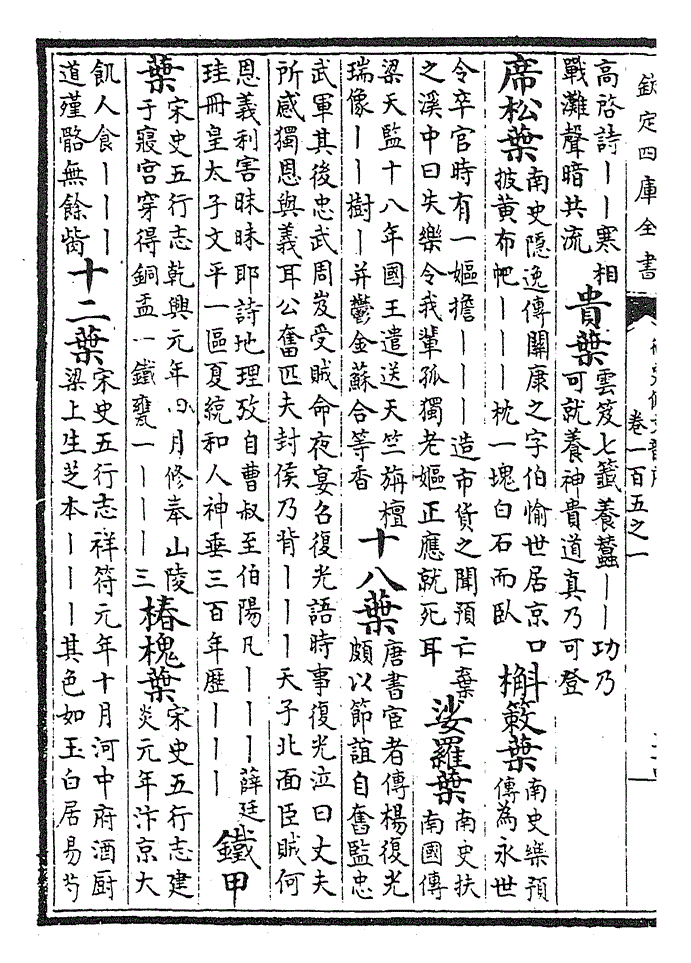 欽定四庫全書
卷一百五之一
高啓詩丨丨寒相戰灘聲暗共流 貴葉 雲笈七籤養蠶丨丨功乃可就養神貴道真乃可登
席松葉 南史隱逸傳關康之字伯愉世居京口披黄布帊丨丨丨枕一塊白石而臥 檞簌葉 南史樂預傳為永世
令卒官時有一嫗擔丨丨丨造市貨之聞預亡棄之溪中曰失樂令我輩孤獨老嫗正應就死耳 娑羅葉 南史扶南國傳
梁天監十八年國王遣送天竺旃檀瑞像丨丨樹丨并鬱金蘇合等香 十八葉 唐書宦者傳楊復光頗以節誼自奮監忠
武軍其後忠武周岌受賊命夜宴召復光語時事復光泣曰丈夫所感獨恩與義耳公奮匹夫封侯乃背丨丨丨天子北面臣賊何
恩義利害昧昧耶詩地理攷自曹叔至伯陽凡丨丨丨薛廷珪冊皇太子文平一區夏統和人神垂三百年歷丨丨丨 鐵甲
葉 宋史五行志乾興元年四月修奉山陵于寢宮穿得銅盂一鐵甕一丨丨丨三 椿槐葉 宋史五行志建炎元年汴京大
飢人食丨丨丨道殣骼無餘胔 十二葉 宋史五行志祥符元年十月河中府酒厨梁上生芝本丨丨丨其色如玉白居易芍